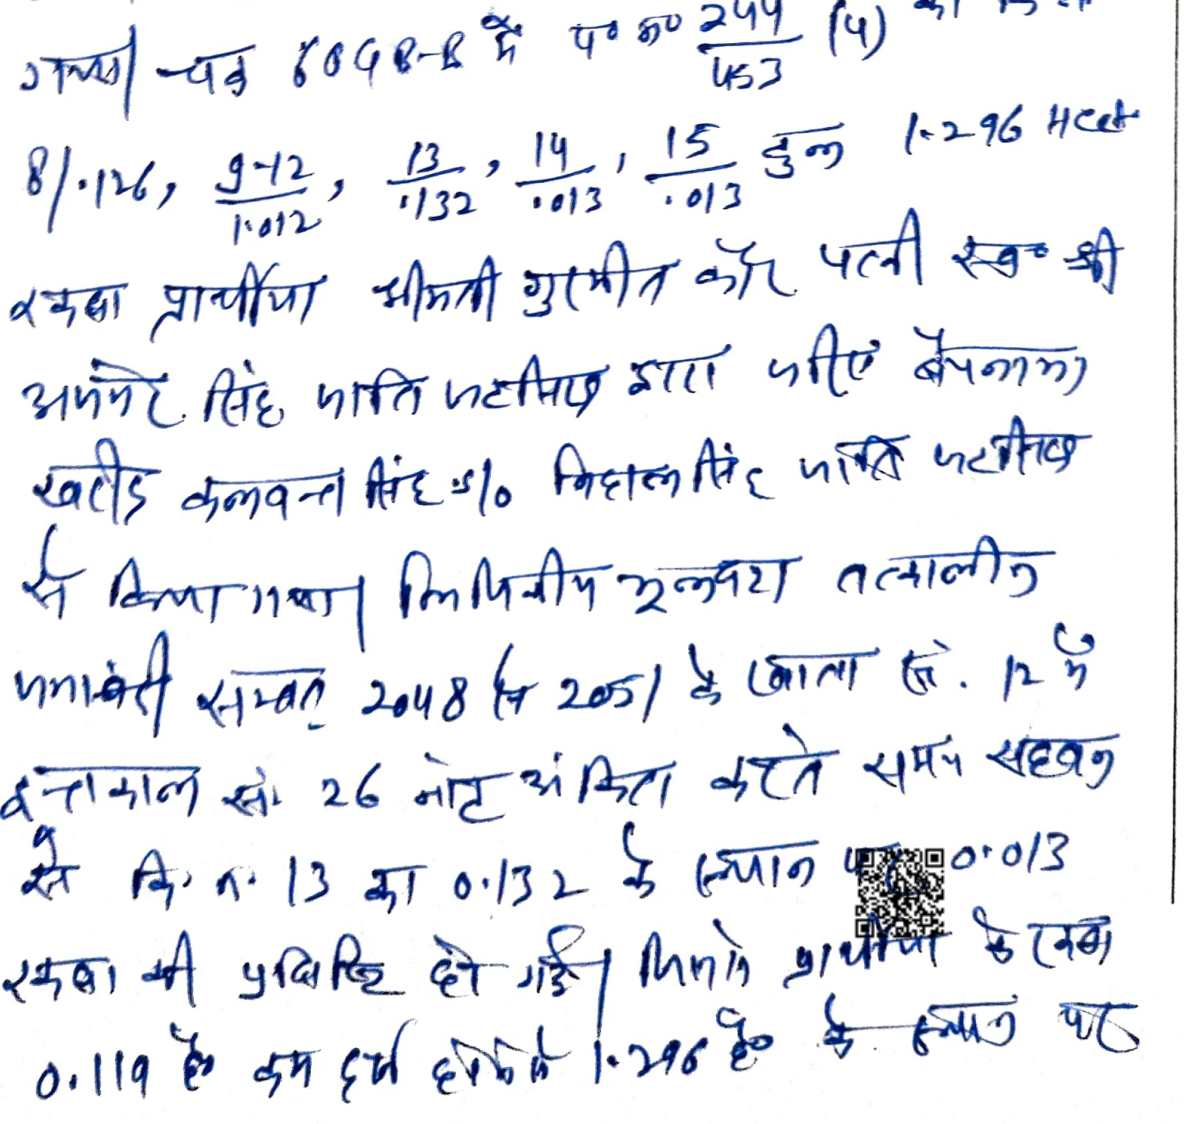 गया। चक 6 OGB-B में प० न० 244/453 (4) का
8/.126, 9-12/1.012, 13/.132, 14/.013, 15/.013 कुल 1.296 Hect
रकबा प्रार्थीया श्रीमती गुरमीत कौर पत्नी स्व० श्री
सिंह जाति जटसिख द्वारा जरिए बैयनामा
खरीद कलवन्त सिंह s/o निहाल सिंह जाति जटसिख
से किया गया। तत्कालीन
जमाबंदी सम्वत् 2048 से 2051 के खाता सं. 12 में
इन्तकाल सं. 26 नोट अंकित करते समय सहवन
से कि. न. 13 का 0.132 के स्थान पर 0.013
रकबा की प्रविष्टि हो गई। जिससे प्रार्थीया के रकबा
0.119 है० कम दर्ज होने से 1.296 है० के स्थान पर